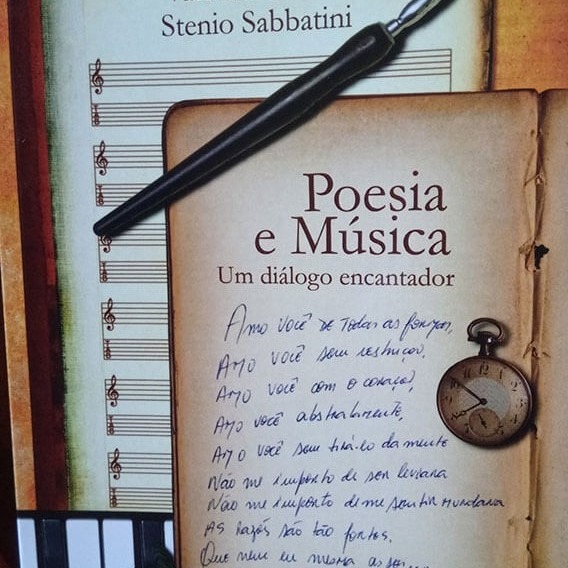 Stenio Sabbatini
Poesia
e Música
Um diálogo encantador
Amo você de todas as formas,
Amo você sem restrições,
Amo você com o coração,
Amo você abstratamente,
Amo você sem tirá-lo da mente
Não me importo de ser leviana
Não me importo de me sentir mundana
As razões são tão fortes.
Que nem eu mesma